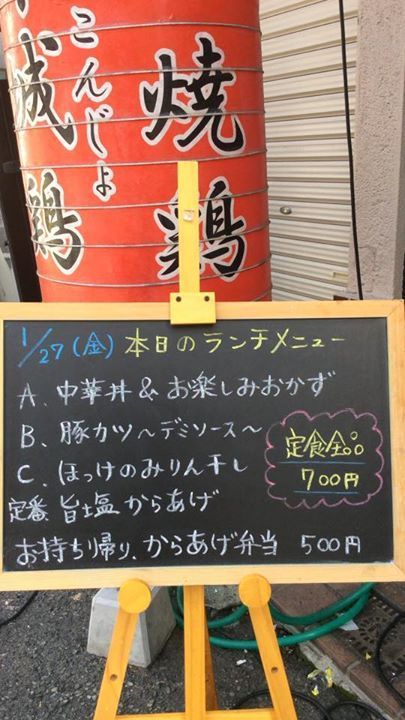 城鶏
こんじょ
焼鶏
1/27(金) 本日のランチメニュー
A、中華丼&お楽しみおかず
B、豚カツ〜デミソース〜
C、ほっけのみりん干し
定番 旨塩からあげ
お持ち帰り、からあげ弁当 500円
定食全品
700円